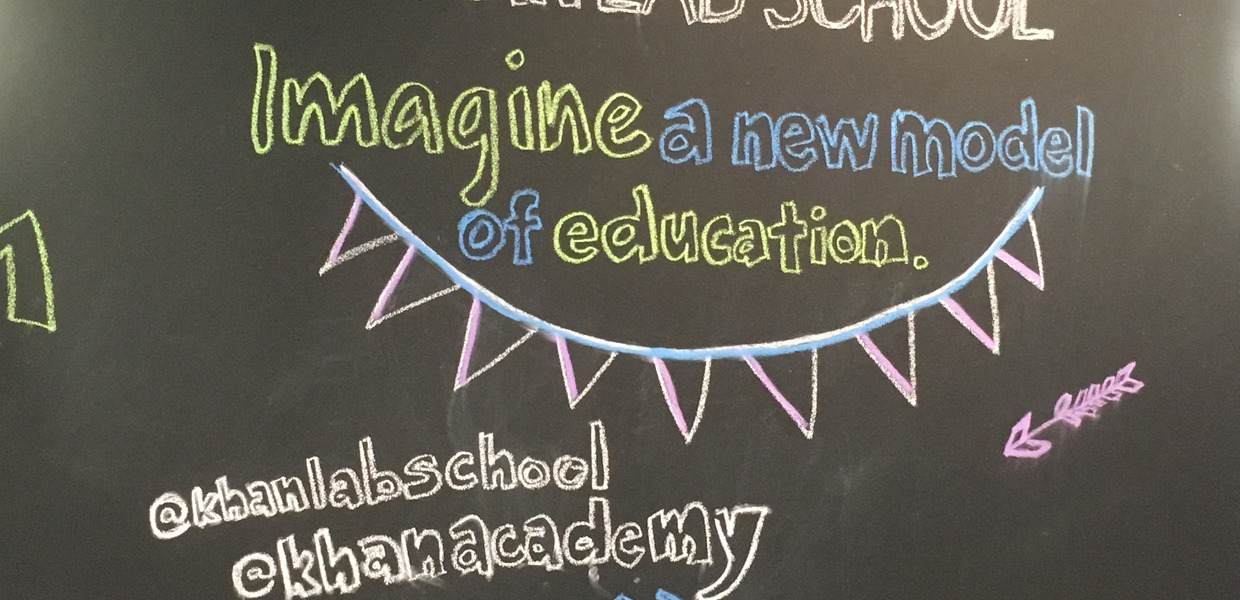 LAB SCHOOL
Imagine a new model
of education.
@khanlabschool
@khanacademy